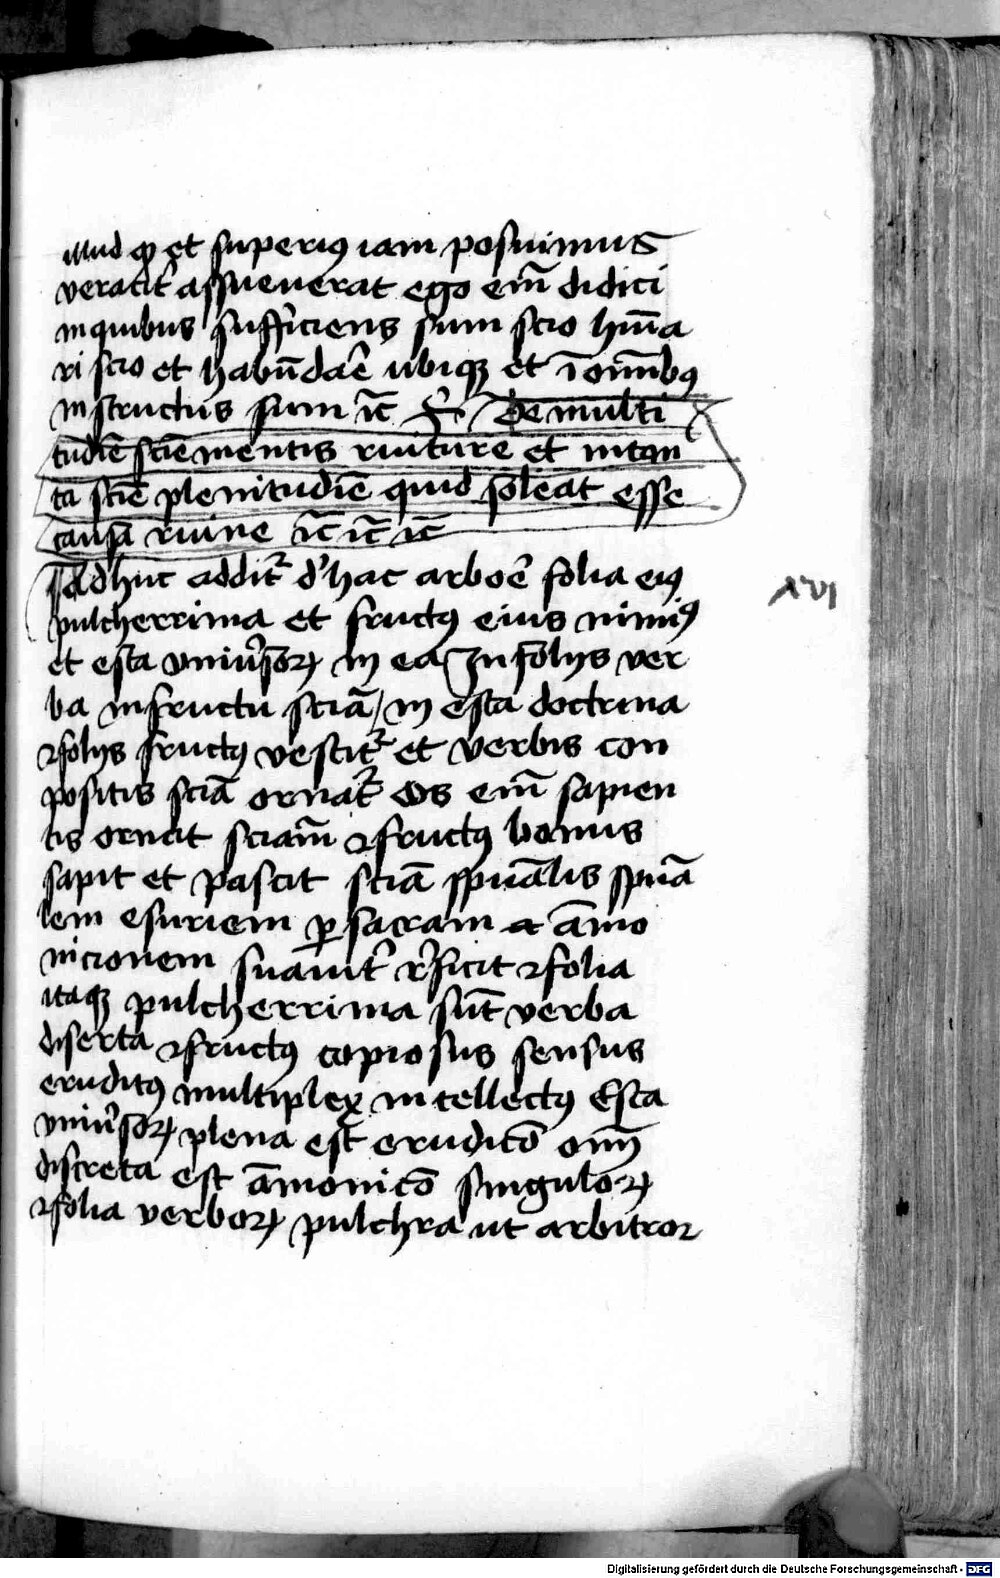 illud qd et superiꝰ iam posuimus
veracit̉ assueuerat ego em̄ didici
in quibus sufficiens sum scio hūıa
ri scio et habūdaē ubiqꝫ et ı̄ oīmbꝯ
instructus sum ic̄ De multi
tudīe scīe mentis ruiture et in tan
ta scīe plenitudīe quid soleat esse
causa ruine ic̄ ic̄ ic̄
Adhuc addit᷑ d' hac arboē folia eiꝰ
pulcherrima et fructꝯ eius nimiꝰ
et esca vniu̓soꝝ in ea In folijs ver
ba in fructu sciā / in esca doctrina
⁊ folijs fructꝯ vestit᷑ et verbis con
positis sciā ornat᷑ Os em̄ sapien
tis ornat sciam̄ ⁊ fructꝯ bonus
sapit et pascit sciā sp̄uālis sp̄uā
lem esuriem ꝑ sacram ac ām̄o
nicionem suauit̉ r̓ficit ⁊ folia
itaqꝫ pulcherrima sūt verba
diserta ⁊ fructꝯ copiosus sensus
eruditꝯ multiplex intellectꝯ Esca
vniu̓soꝝ plena est eruditō oīm
discreta est āmonitō singuloꝝ
⁊ folia verboꝝ pulchra ut arbitror
xvi
Digitalisierung gefördert durch die Deutsche Forschungsgemeinschaft - DFG